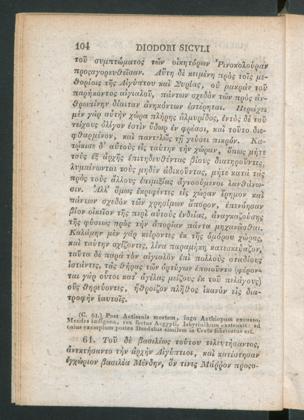 104 DIODORI SICVLI
τοῦ συμπτώματος τῶν οἰκητόρων Ῥινοκολούραν
προσαγορευθεῖσαν. Αὕτη δὲ κειμένη πρὸς τοῖς με-
θορίοις τῆς Αἰγύπτου καὶ Συρίας, οὐ μακρὰν τοῦ
παρήκοντος αἰγιαλοῦ, πάντων σχεδὸν τῶν πρὸς ἀν-
θρωπίνην δίαιταν ἀνηκόντων ἐστέρηται. Περιέχει
μὲν γὰρ αὐτὴν χώρα πλήρης ἁλμυρίδος, ἐντὸς δὲ τοῦ
τείχους ὀλίγον ἐστὶν ὕδωρ ἐν φρέασι, καὶ τοῦτο διε-
φθαρμένον, καὶ παντελῶς τῇ γεύσει πικρόν. Κα-
τῴκισε δ' αὐτοὺς εἰς ταύτην τὴν χώραν, ὅπως μήτε
τοὺς ἐξ ἀρχῆς ἐπιτηδευθέντας βίους διατηροῦντες,
λυμαίνωνται τοὺς μηδὲν ἀδικοῦντας, μήτε κατὰ τὰς
πρὸς τοὺς ἄλλους ἐπιμιξίας ἀγνοούμενοι λανθάνω-
σιν. Ἀλλ' ὅμως ἐκριφέντες εἰς χώραν ἔρημον καὶ
πάντων σχεδὸν τῶν χρησίμων ἄπορον, ἐπενόησαν
βίον οἰκεῖον τῆς περὶ αὐτοὺς ἐνδείας, ἀναγκαζούσης
τῆς φύσεως πρὸς τὴν ἀπορίαν πάντα μηχανᾶσθαι.
Καλάμην μὲν γὰρ κείροντες ἐκ τῆς ὁμόρου χώρας,
καὶ ταύτην σχίζοντες, λίνα παραμήκη κατεσκεύαζον,
ταῦτα δὲ παρὰ τὸν αἰγιαλὸν ἐπὶ πολλοὺς σταδίους
ἱστάντες, τὰς θήρας τῶν ὀρτύγων ἐποιοῦντο (φέρον-
ται γὰρ οὗτοι κατ' ἀγέλας μείζους ἐκ τοῦ πελάγους)
οὓς θηρεύοντες, ἤθροιζον πλῆθος ἱκανὸν εἰς δια-
τροφὴν ἑαυτοῖς.
(C. 61.) Post Actisanis mortem, iugo Aethiopum excusso,
Mendes indigena, rex factus Aegypti, labyrinthum exstruxit: ad
cuius exemplum postea Daedalus similem in Creta fabricatus est.
61. Τοῦ δὲ βασιλέως τούτου τελευτήσαντος,
ἀνεκτήσαντο τὴν ἀρχὴν Αἰγύπτιοι, καὶ κατέστησαν
ἐγχώριον βασιλέα Μένδην, ὅν τινες Μάῤῥον προσο-